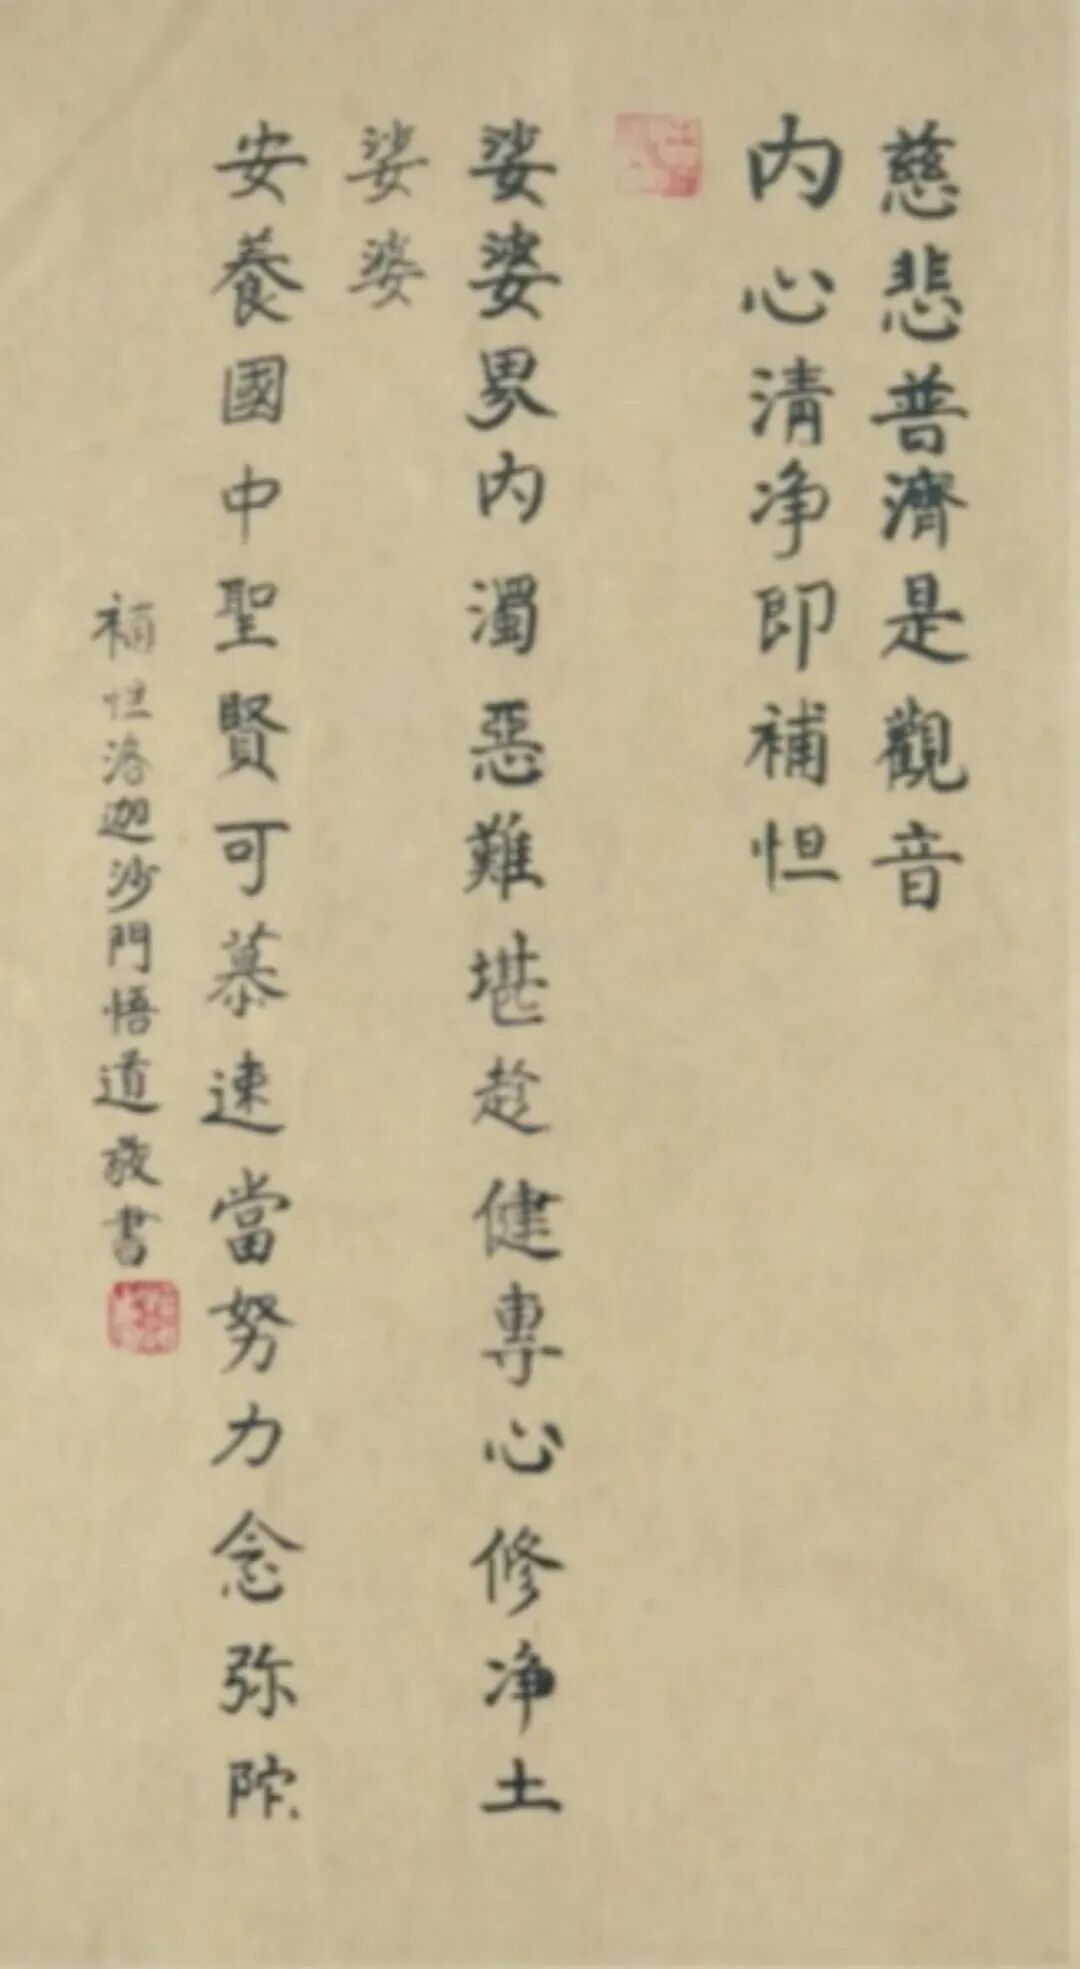 慈悲普濟是觀音
内心清净即補怛
娑娑界内濁惡難堪趁健專心修净土
娑婆
安養國中聖賢可慕速當努力念弥陀
補怛洛迦沙門悟道敬書